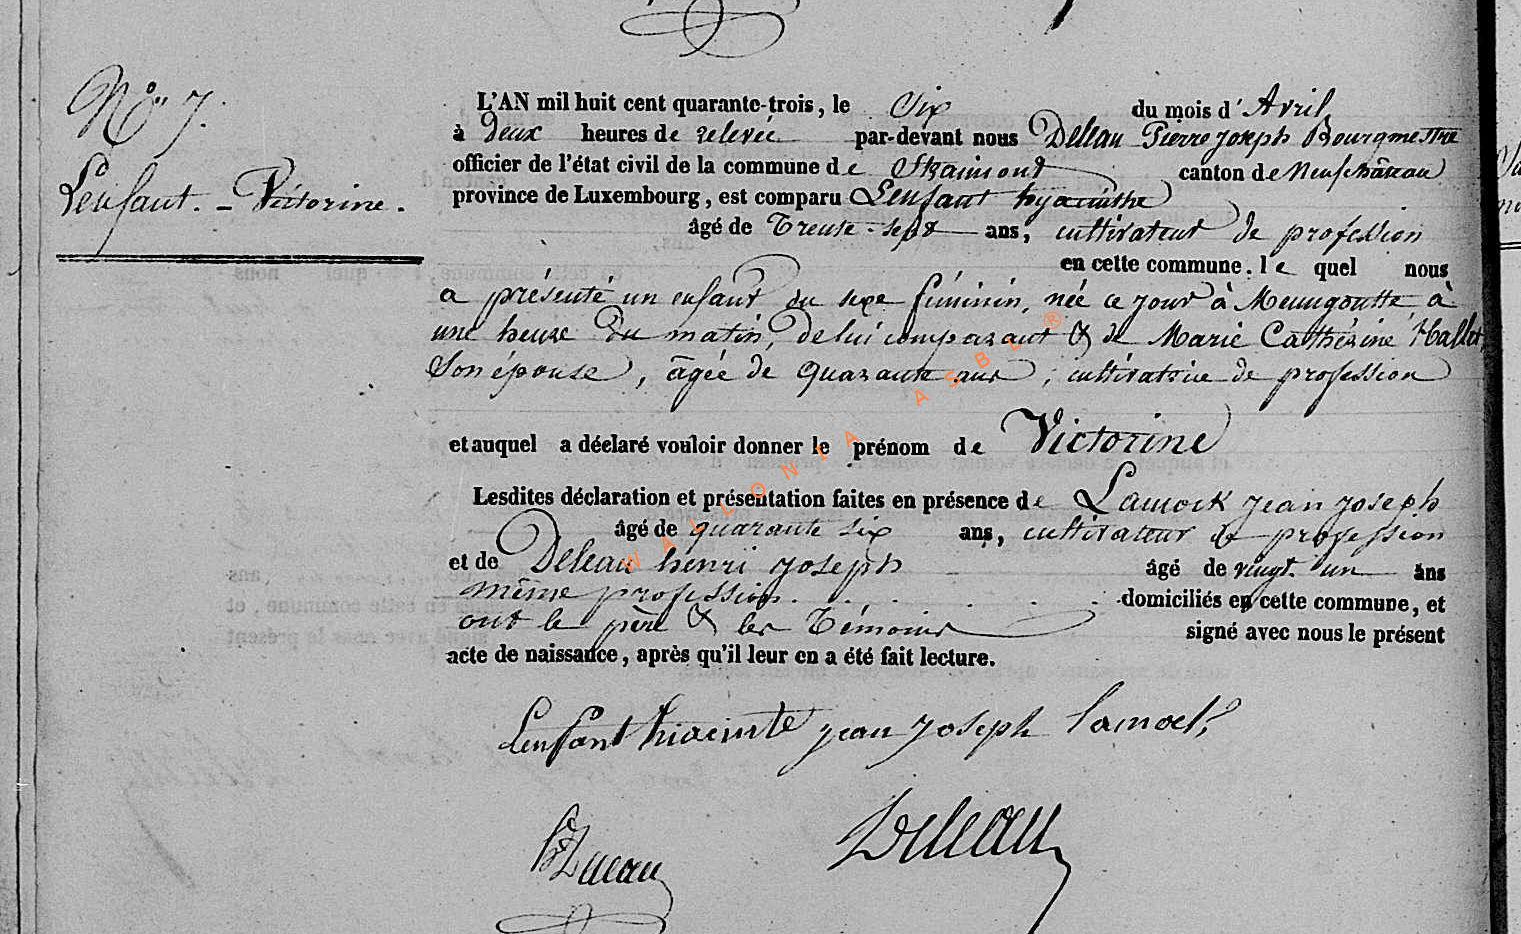 N° 7.
Lenfant. - Victorine.
L'AN mil huit cent quarante-trois, le Six du mois d' Avril
à Deux heures de relevée par-devant nous Deleau Pierre joseph Bourgmestre
officier de l'état civil de la commune de Straimont canton de Neufchâteau
province de Luxembourg, est comparu Lenfant hyacinthe
âgé de Trente-sept ans, cultivateur de profession
en cette commune. le quel nous
a présenté un enfant du sexe féminin, née ce jour à Menugoutte à
une heure du matin, de lui comparant & de Marie Cathérine Hallet,
Son épouse, âgée de quarante , cultivatrice de profession
et auquel a déclaré vouloir donner le prénom de Victorine
Lesdites déclaration et présentation faites en présence de Lamock jean joseph
âgé de quarante six ans, cultivateur de profession
et de Deleau henri joseph âgé de vingt un ans
même profession . . . . . . . domiciliés en cette commune, et
ont le père & les Témoins signé avec nous le présent
acte de naissance, après qu'il leur en a été fait lecture.
Lenfant hiacinte jean joseph
Deleau
WALLONIA ASBL ®